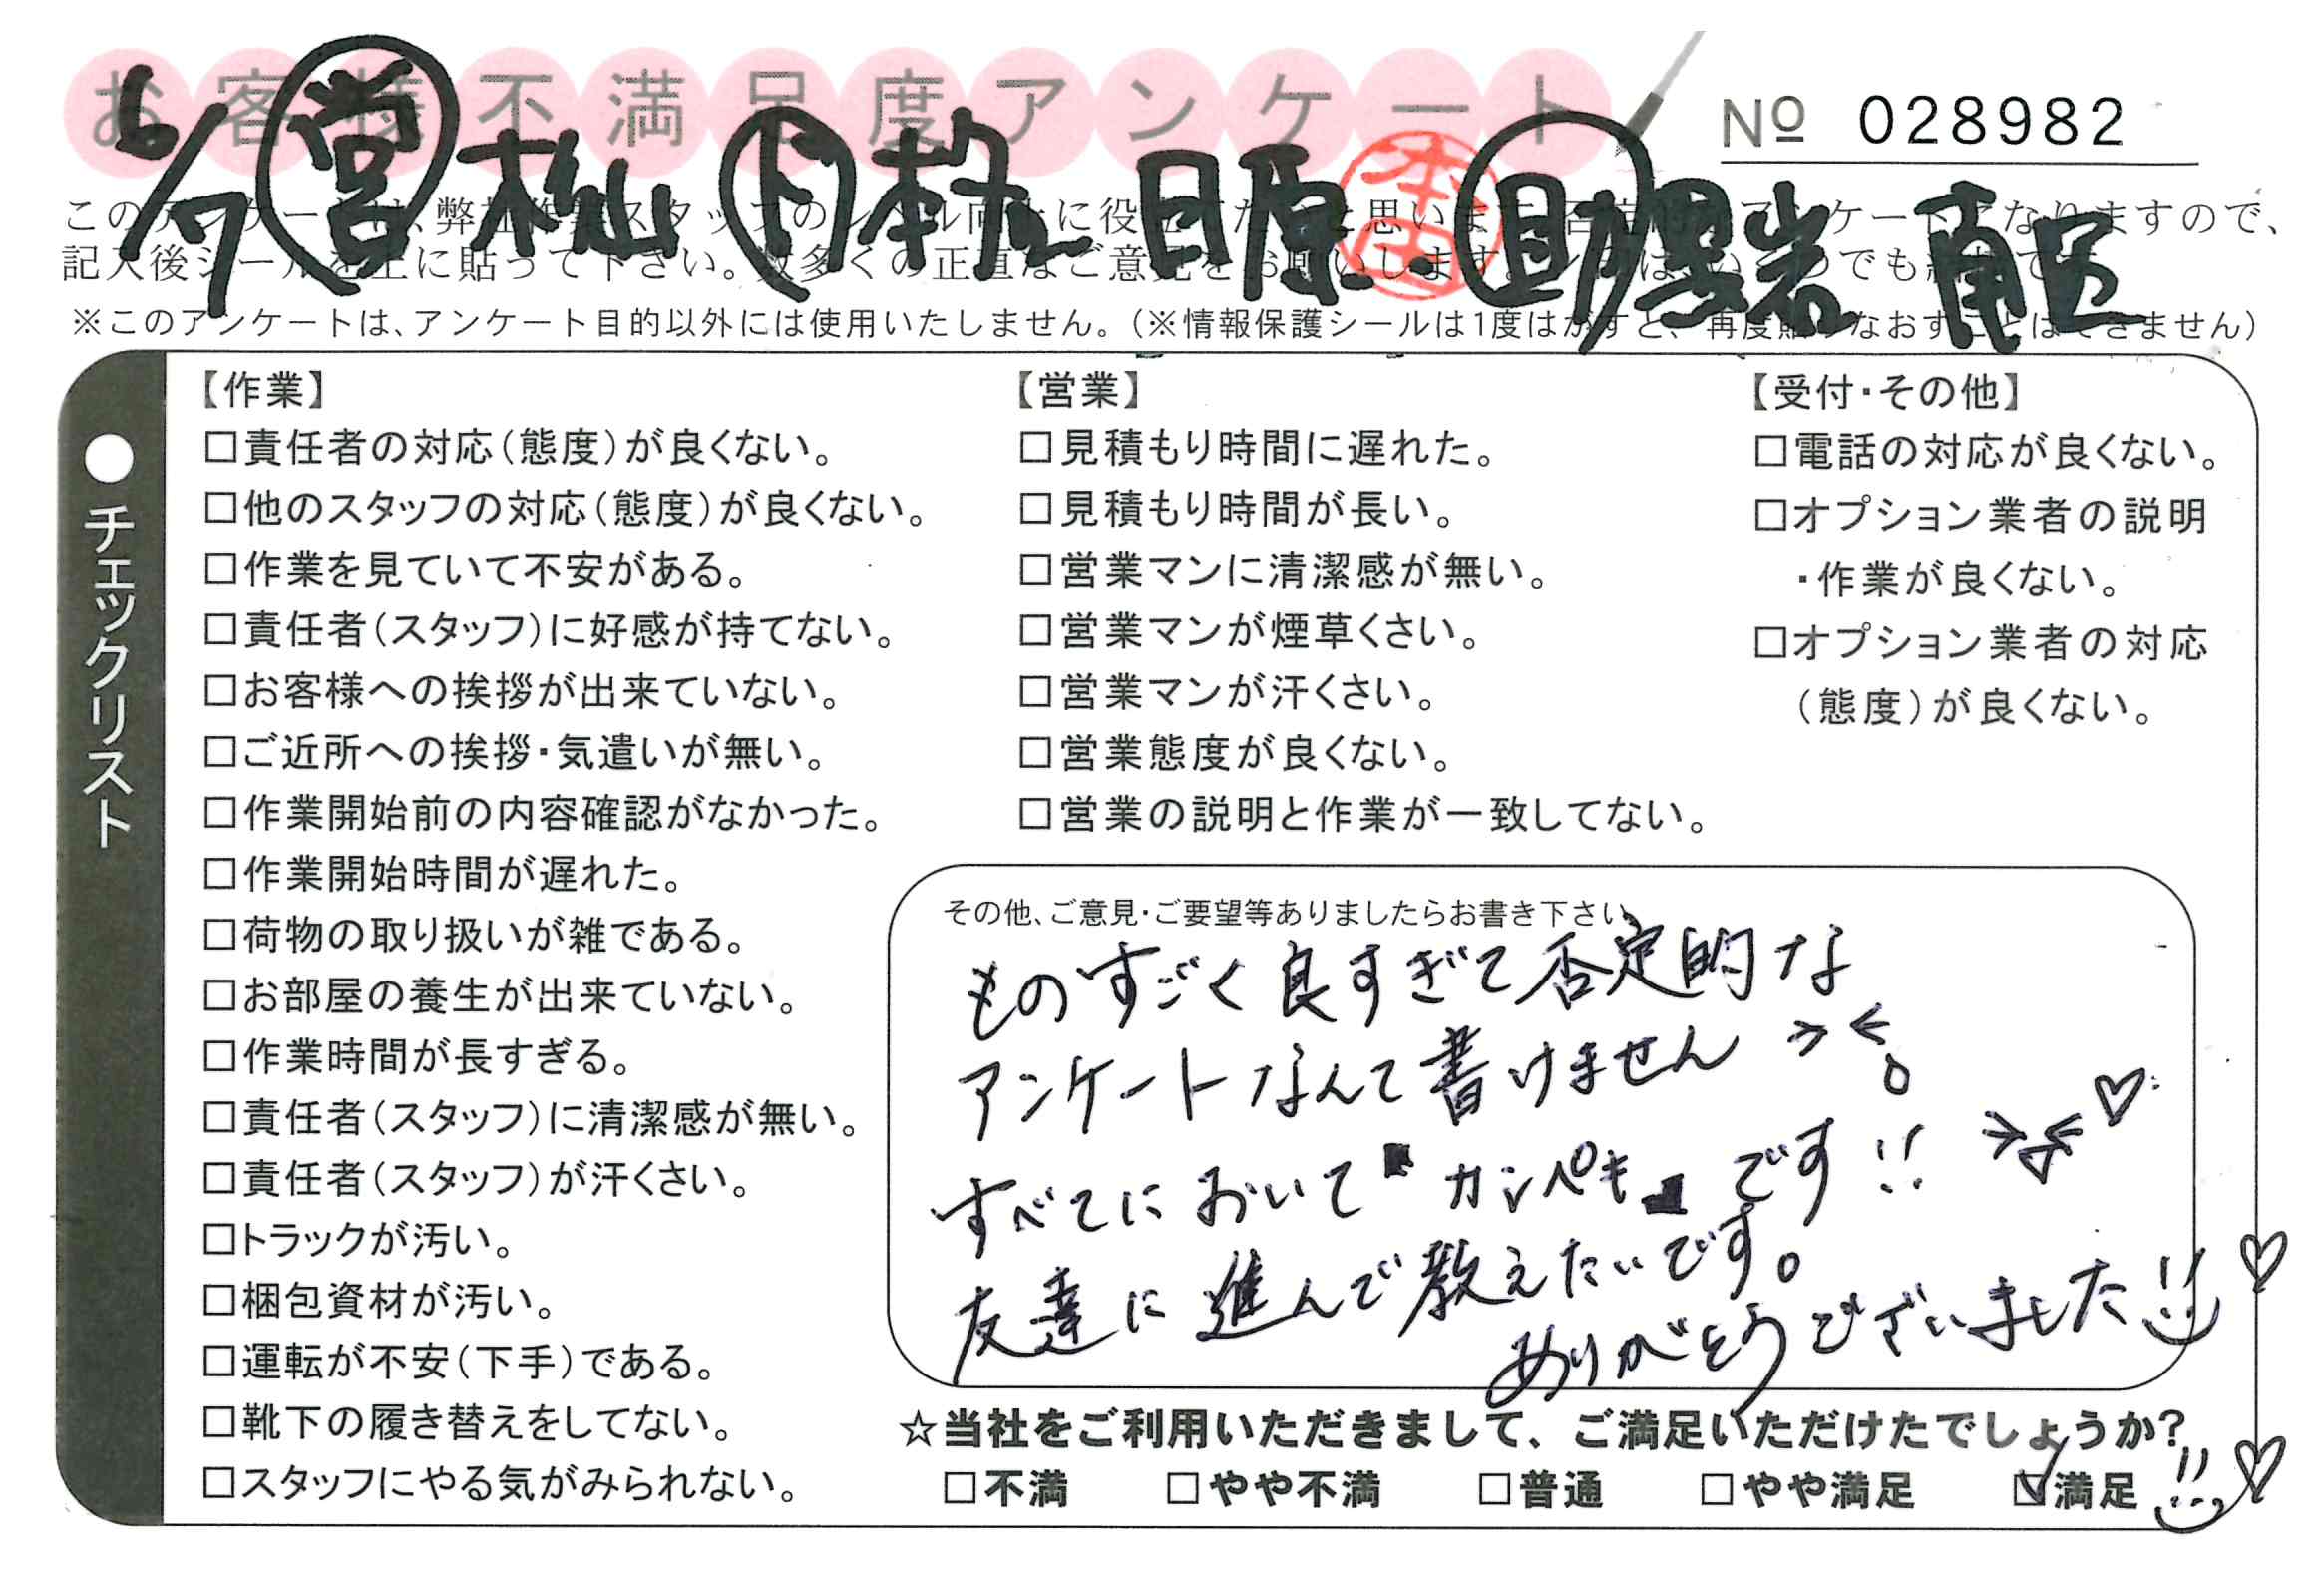 お客様不満足度アンケート
No 028982
6/7 営 杉山 ト 本丸 日原 本田 助 黒岩 南区
このアンケートは、弊社作業スタッフのレベル向上に役立てたいと思います。否定的なアンケートになりますので、
記入後シールを上に貼って下さい。数多くの正直なご意見をお願いします。
※このアンケートは、アンケート目的以外には使用いたしません。（※情報保護シールは1度はがすと、再度貼りなおすことはできません）
●チェックリスト
【作業】
□責任者の対応（態度）が良くない。
□他のスタッフの対応（態度）が良くない。
□作業を見ていて不安がある。
□責任者（スタッフ）に好感が持てない。
□お客様への挨拶が出来ていない。
□ご近所への挨拶・気遣いが無い。
□作業開始前の内容確認がなかった。
□作業開始時間が遅れた。
□荷物の取り扱いが雑である。
□お部屋の養生が出来ていない。
□作業時間が長すぎる。
□責任者（スタッフ）に清潔感が無い。
□責任者（スタッフ）が汗くさい。
□トラックが汚い。
□梱包資材が汚い。
□運転が不安（下手）である。
□靴下の履き替えをしてない。
□スタッフにやる気がみられない。
【営業】
□見積もり時間に遅れた。
□見積もり時間が長い。
□営業マンに清潔感が無い。
□営業マンが煙草くさい。
□営業マンが汗くさい。
□営業態度が良くない。
□営業の説明と作業が一致してない。
【受付・その他】
□電話の対応が良くない。
□オプション業者の説明
・作業が良くない。
□オプション業者の対応
（態度）が良くない。
その他、ご意見・ご要望等ありましたらお書き下さい。
ものすごく良すぎて否定的な
アンケートなんて書けません ＞＜。
すべてにおいて『カンペキ』です!! ＞＜♡
友達に進んで教えたいです。
ありがとうございました!! ♡
☆当社をご利用いただきまして、ご満足いただけたでしょうか?
□不満 □やや不満 □普通 □やや満足 ☑満足 !! ♡